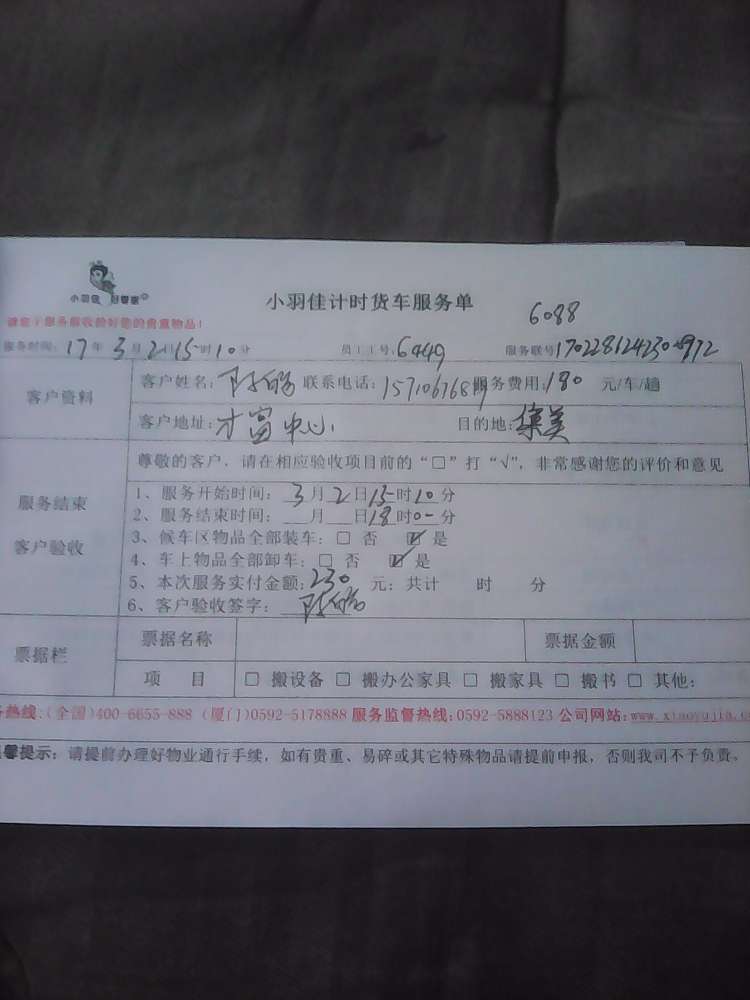 小羽佳 好管家
小羽佳计时货车服务单
6088
服务时间: 17年3月2日15时10分 员工工号: 6449 服务联号170228124230
客户资料
客户姓名: 联系电话: 服务费用: 180 元/车/趟
客户地址: 才富中心 目的地: 集美
尊敬的客户, 请在相应验收项目前的“□”打“√”, 非常感谢您的评价和意见
服务结束
客户验收
1、服务开始时间: 3月2日15时10分
2、服务结束时间: __月__日18时0分
3、候车区物品全部装车: □ 否 ☑ 是
4、车上物品全部卸车: □ 否 ☑ 是
5、本次服务实付金额: 230 元; 共计 时 分
6、客户验收签字:
票据栏
票据名称 票据金额
项 目 □ 搬设备 □ 搬办公家具 □ 搬家具 □ 搬书 □ 其他:
务热线:(全国)400-6655-888 (厦门)0592-5178888 服务监督热线:0592-5888123 公司网站:www.xiaoyujia.
馨提示: 请提前办理好物业通行手续, 如有贵重、易碎或其它特殊物品请提前申报, 否则我司不予负责。